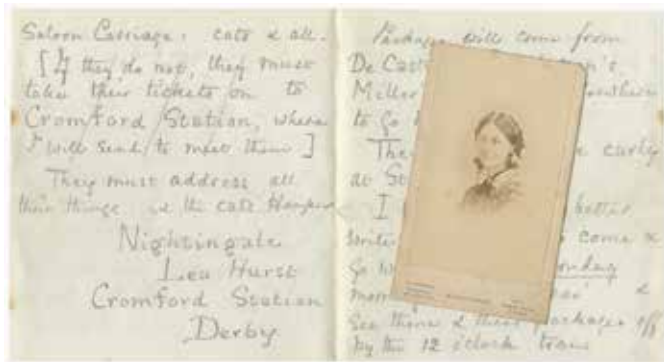 Saloon Carriage: cats & all.
[If they do not, they must
take their tickets on to
Cromford Station, where
I will send to meet them]
They must address all
their things & the cats Hamper
Nightingale
Lea Hurst
Cromford Station
Derby
Packages will come from
De
Miller
to go
The early
at St
I better
write come &
go onday
morn &
See them & their packages off
by the 12 o'clock train